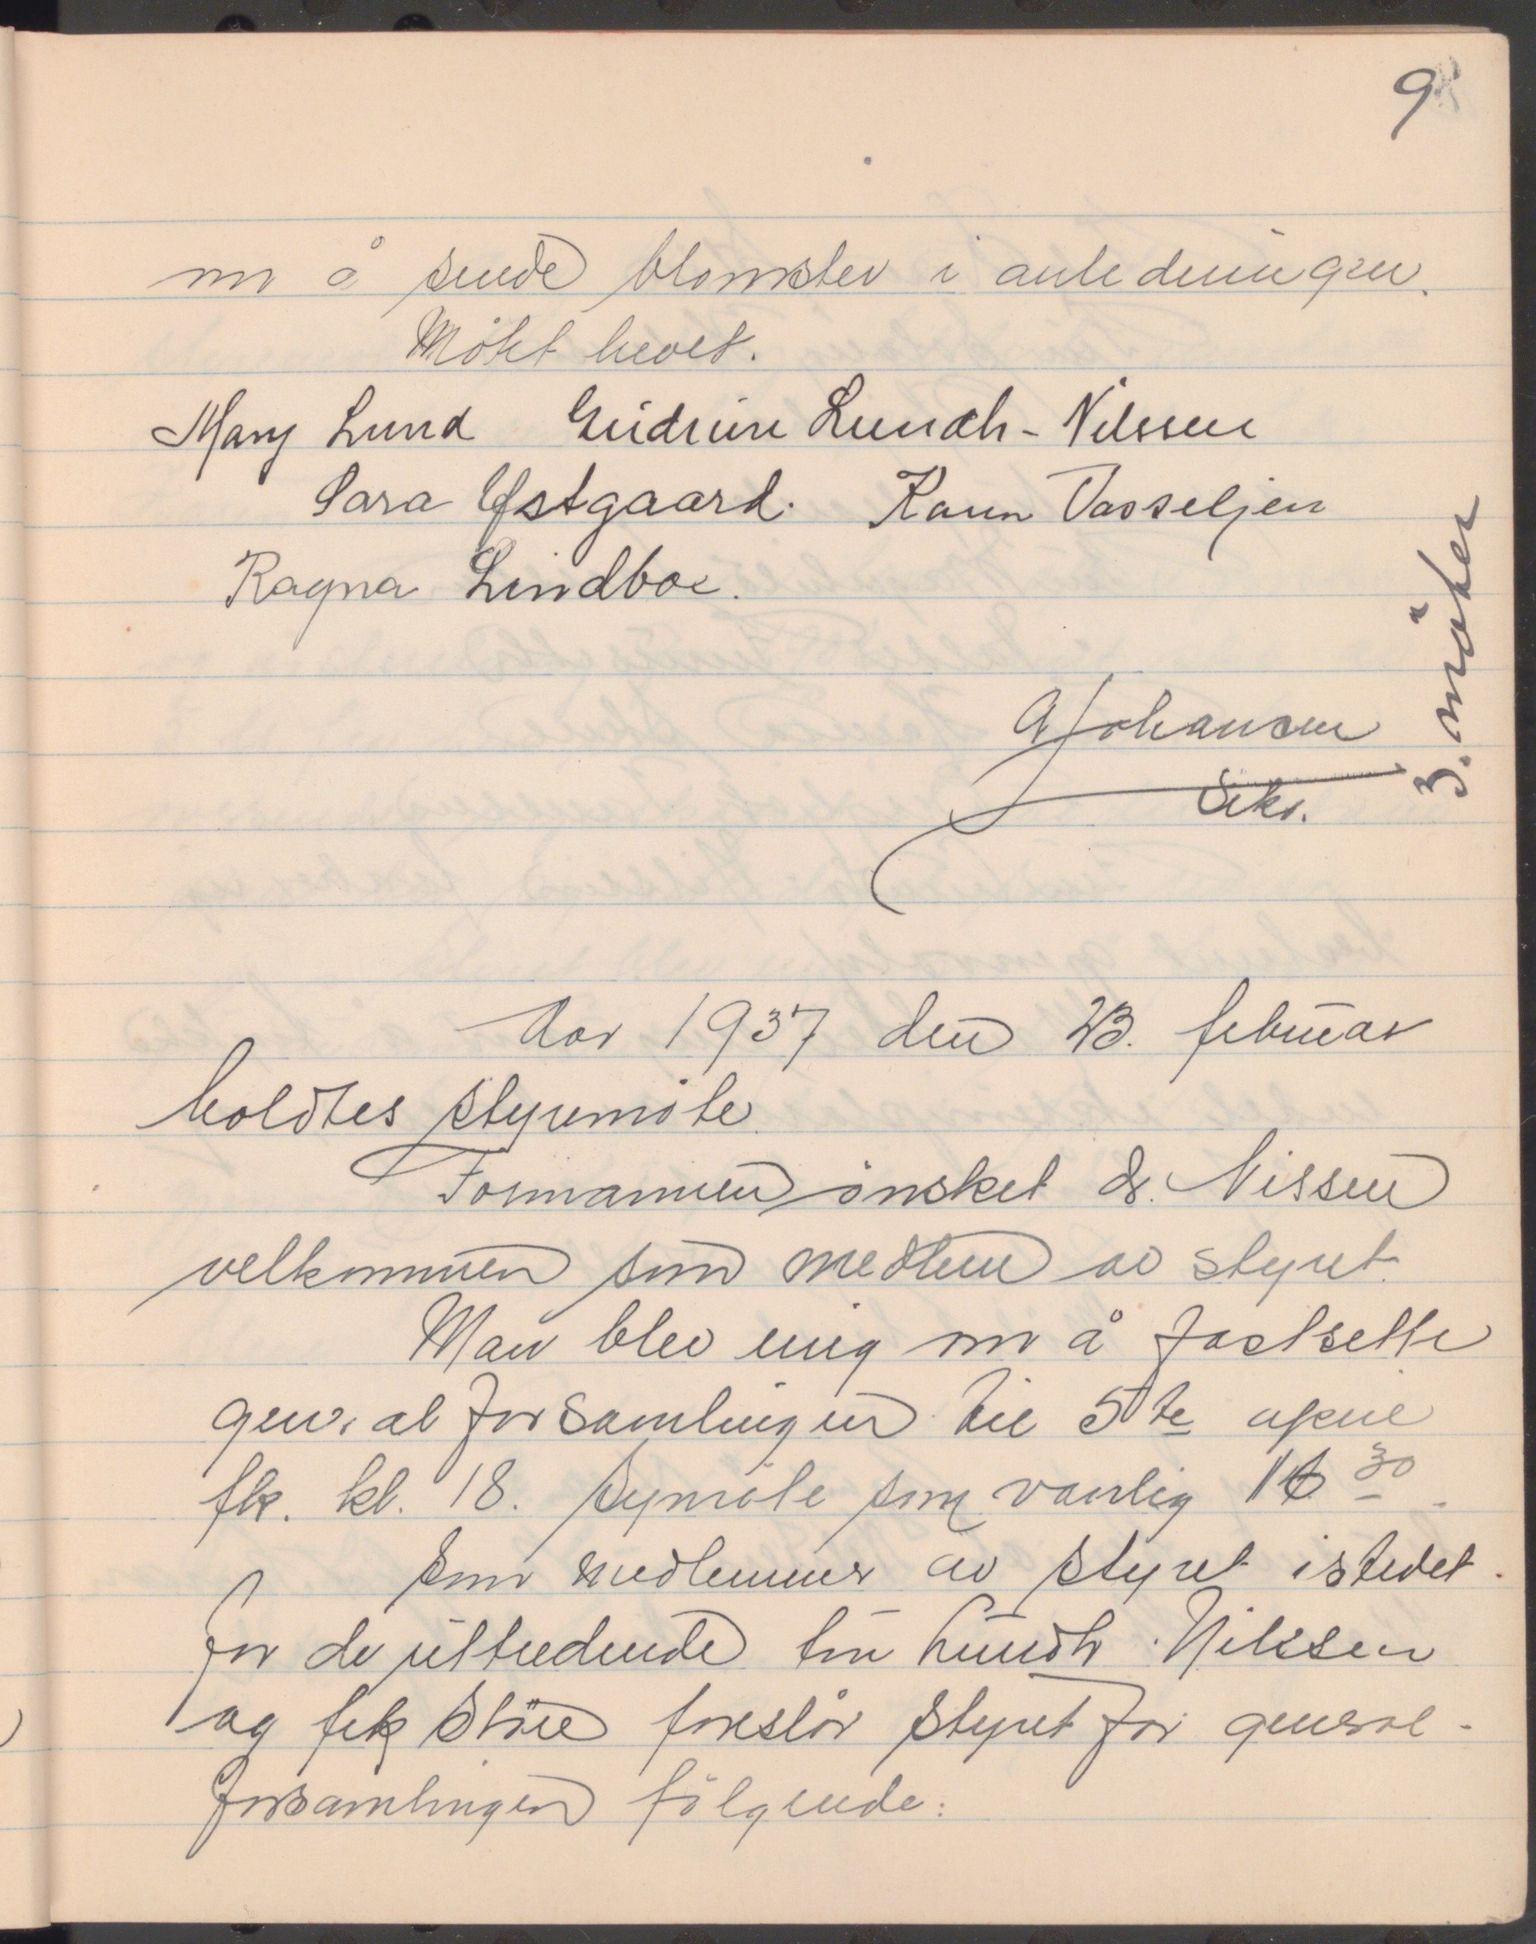 9
om å sende blomster i anledningen.
Møtet hevet.
Mary Lund Gudrun Lundh-Nilssen
Sara Østgaard. Karen Vasseljen
Ragna Lindboe.
3. møter
A Johansen
Sekr.
Aar 1937 den 23. februar
holdtes styremøte.
Formannen ønsket dr. Nissen
velkommen som medlem av styret.
Man blev enig om å fastsette
generalforsamlingen til 5te april
fk. kl. 18. Symøte som vanlig 16 30.
Som medlemmer av styret istedet
for de uttredende fru Lundh Nilssen
og frk Støre foreslår styret for general-
forsamlingen følgende: